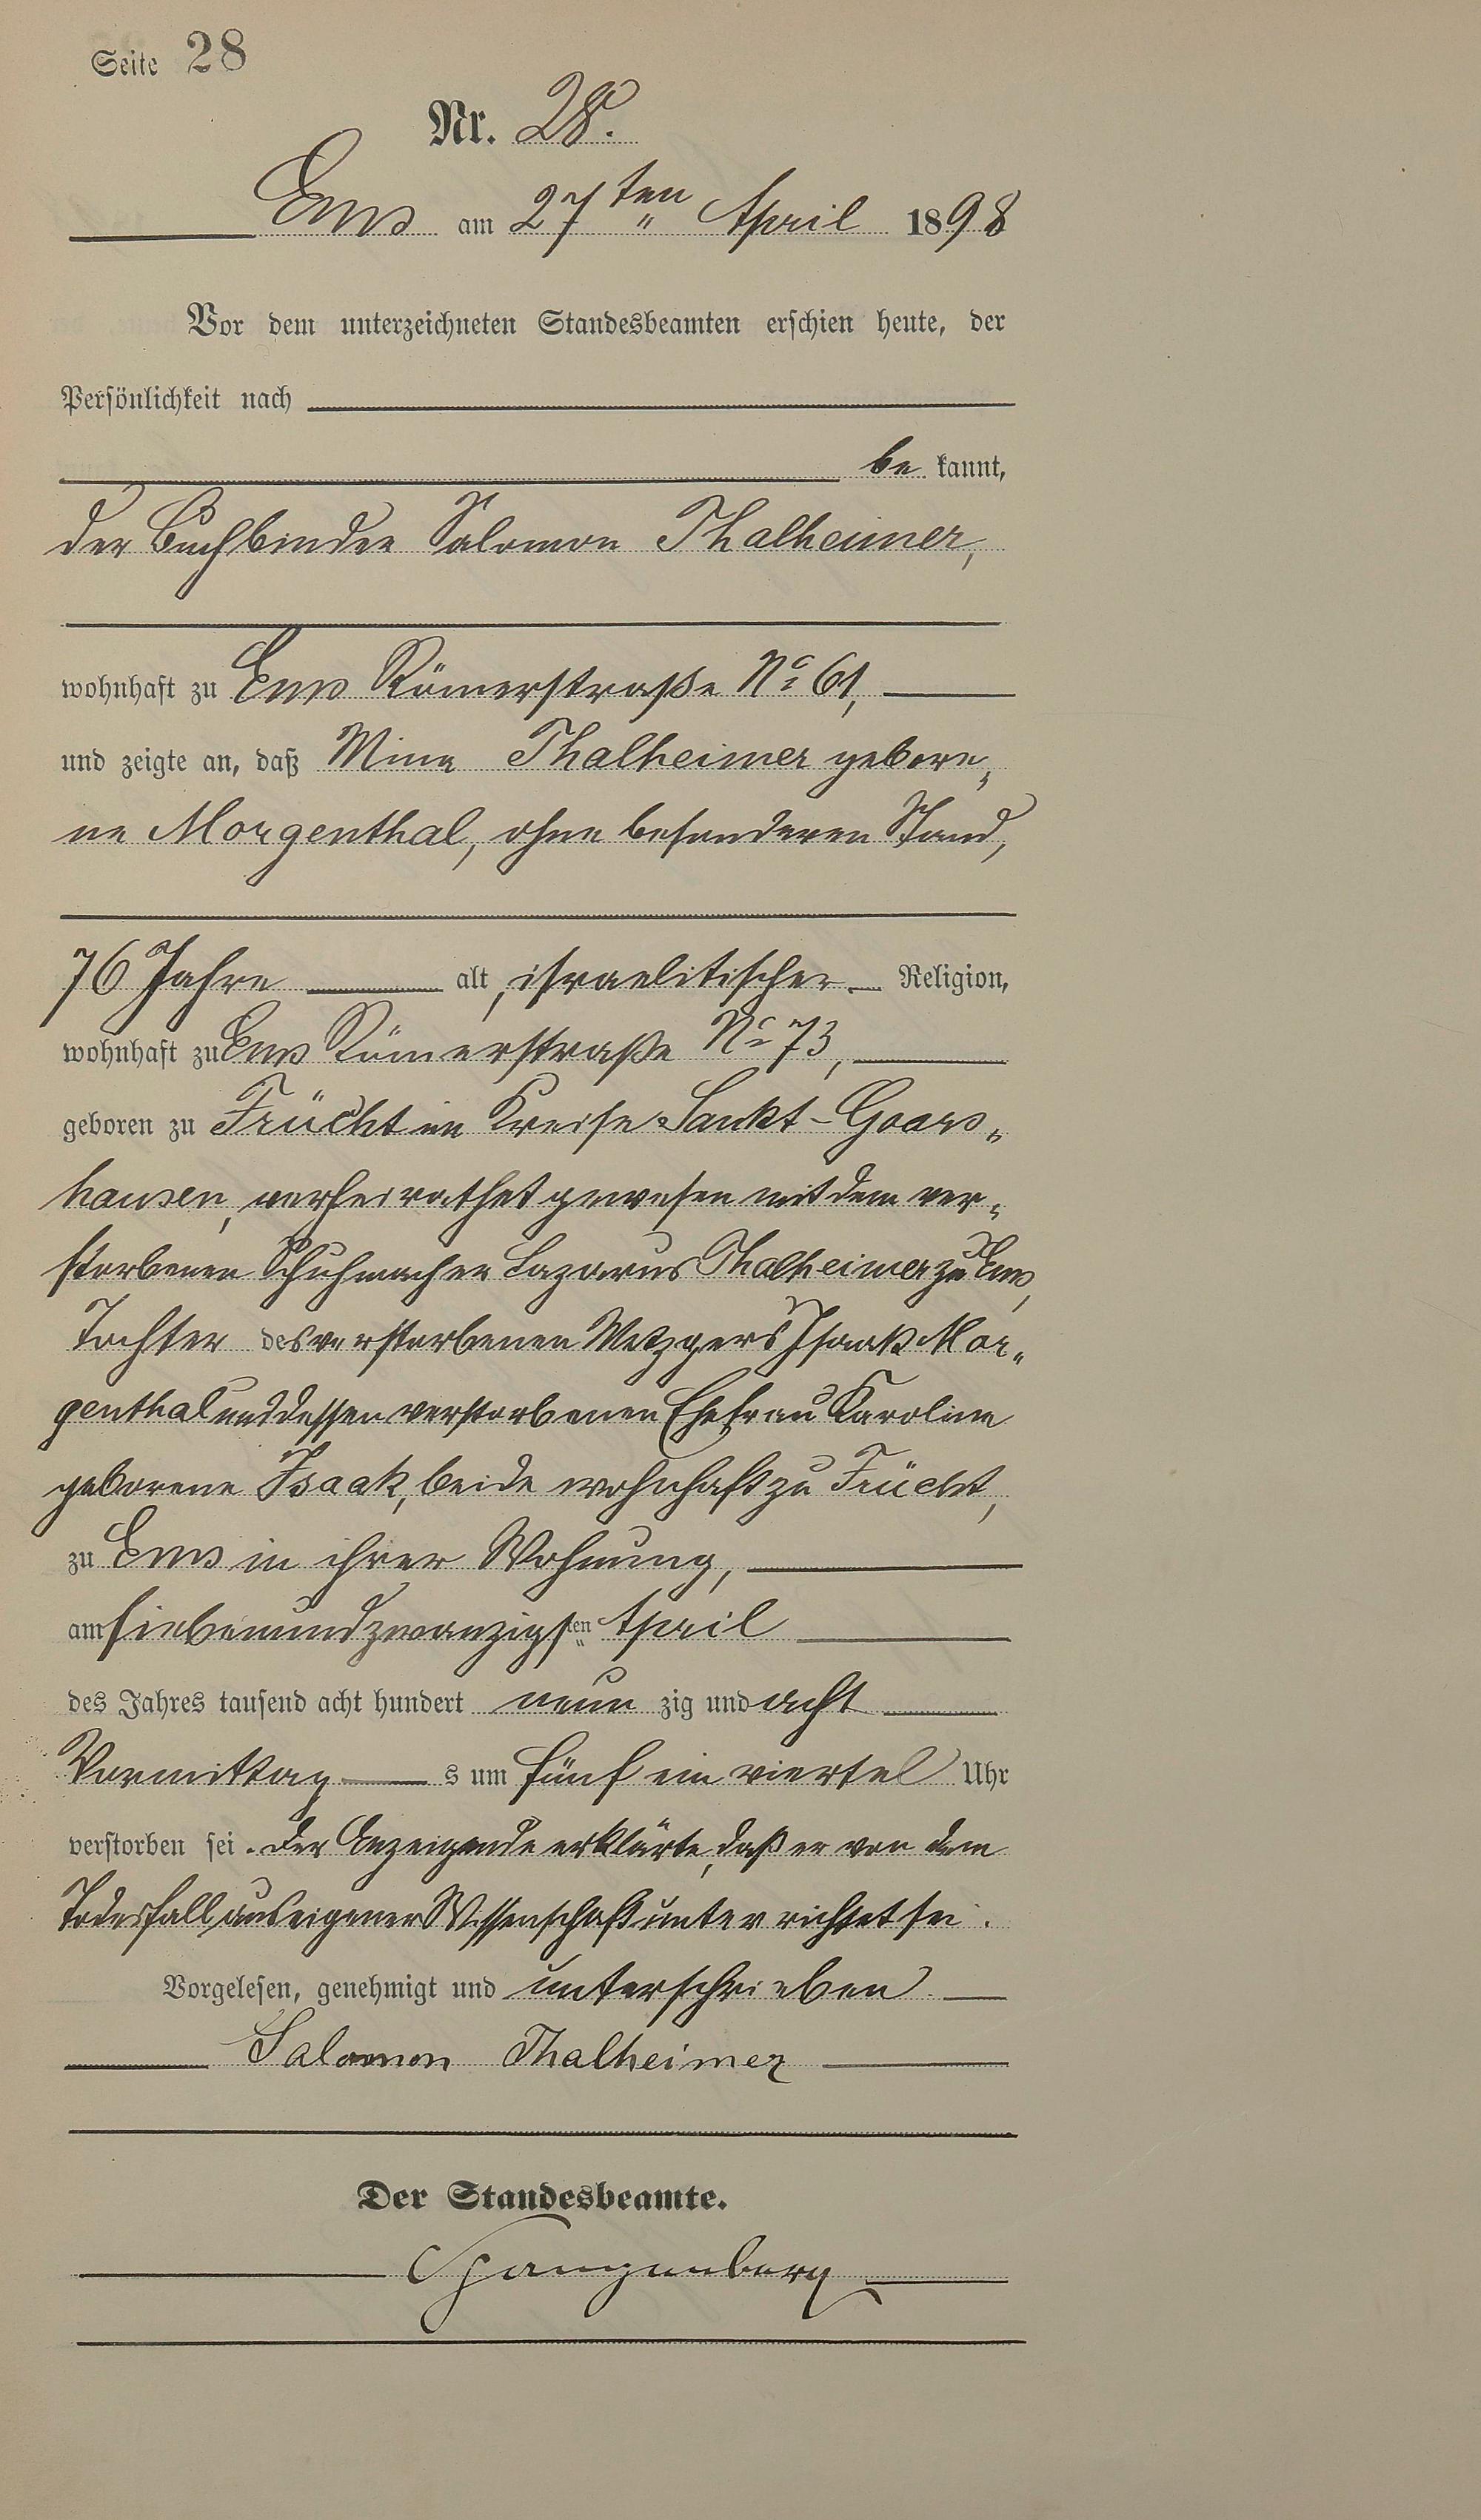 Seite 28
Nr. 28.
Ems am 27ten April 1898
Vor dem unterzeichneten Standesbeamten erschien heute, der
Persönlichkeit nach
be kannt,
der Buchbinder Salomon Thalheimer,
wohnhaft zu Ems Römerstraße No 61,
und zeigte an, daß Mina Thalheimer gebore„
ne Morgenthal, ohne besonderen Stand,
76 Jahre alt, israelitischer Religion,
wohnhaft zu Ems Römerstraße No 73,
geboren zu Frücht im Kreise Sankt-Goars„
hausen, verheirathet gewesen mit dem ver„
storbenen Schuhmacher Lazarus Thalheimer zu Ems,
Tochter des verstorbenen Metzgers Isaak Mor„
genthal und dessen verstorbenen Ehefrau Karoline
geborene Isaak, beide wohnhaft zu Frücht,
zu Ems in ihrer Wohnung,
am siebenundzwanzigsten April
des Jahres tausend acht hundert neun zig und acht
Vormittag s um fünf ein viertel Uhr
verstorben sei. Der Anzeigende erklärte, daß er von dem
Todesfall aus eigener Wissenschaft unterrichtet sei.
Vorgelesen, genehmigt und unterschrieben
Salomon Thalheimer
Der Standesbeamte.
Spangenberg